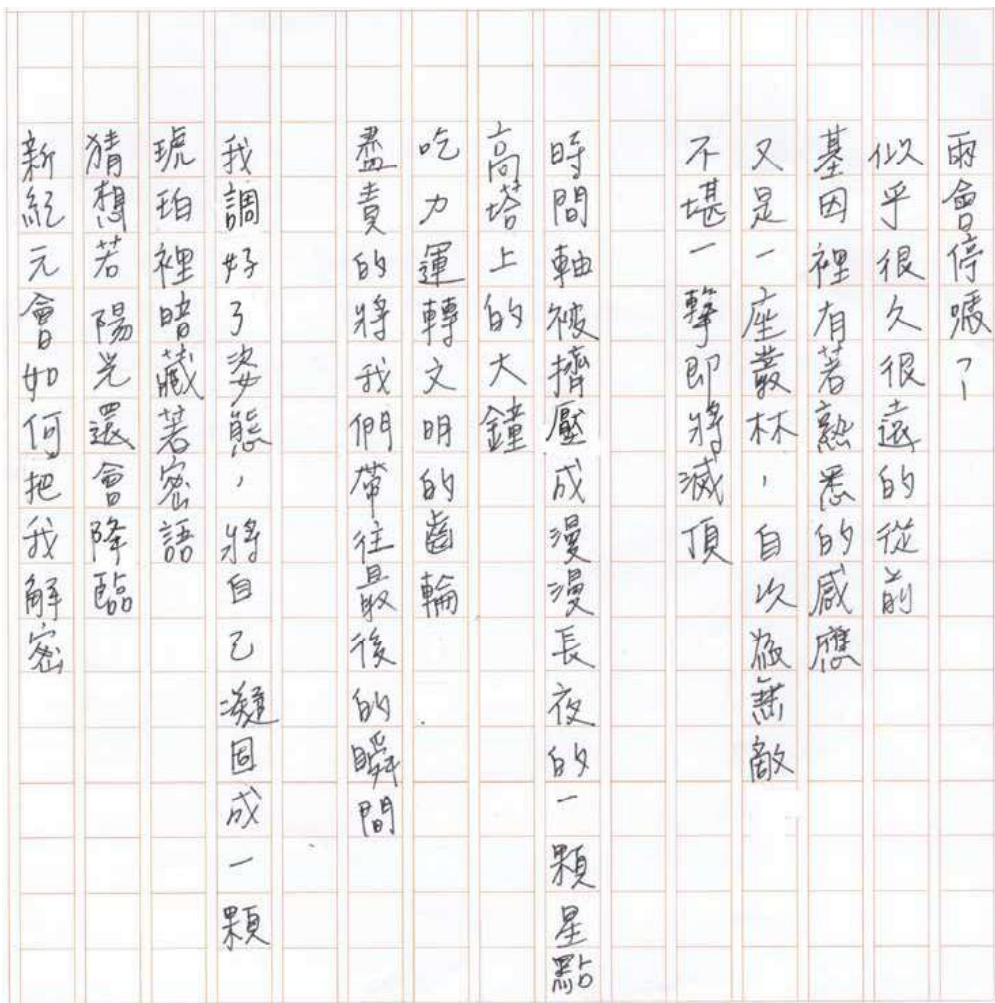 雨會停嗎？
似乎很久很遠的從前
基因裡有著熟悉的感應
又是一座叢林，自以為無敵
不堪一擊即將滅頂
時間軸被擠壓成漫漫長夜的一顆星點
高塔上的大鐘
吃力運轉文明的齒輪
盡責的將我們帶往最後的瞬間
我調好了姿態，將自己凝固成一顆
琥珀裡暗藏著密語
猜想若陽光還會降臨
新紀元會如何把我解密